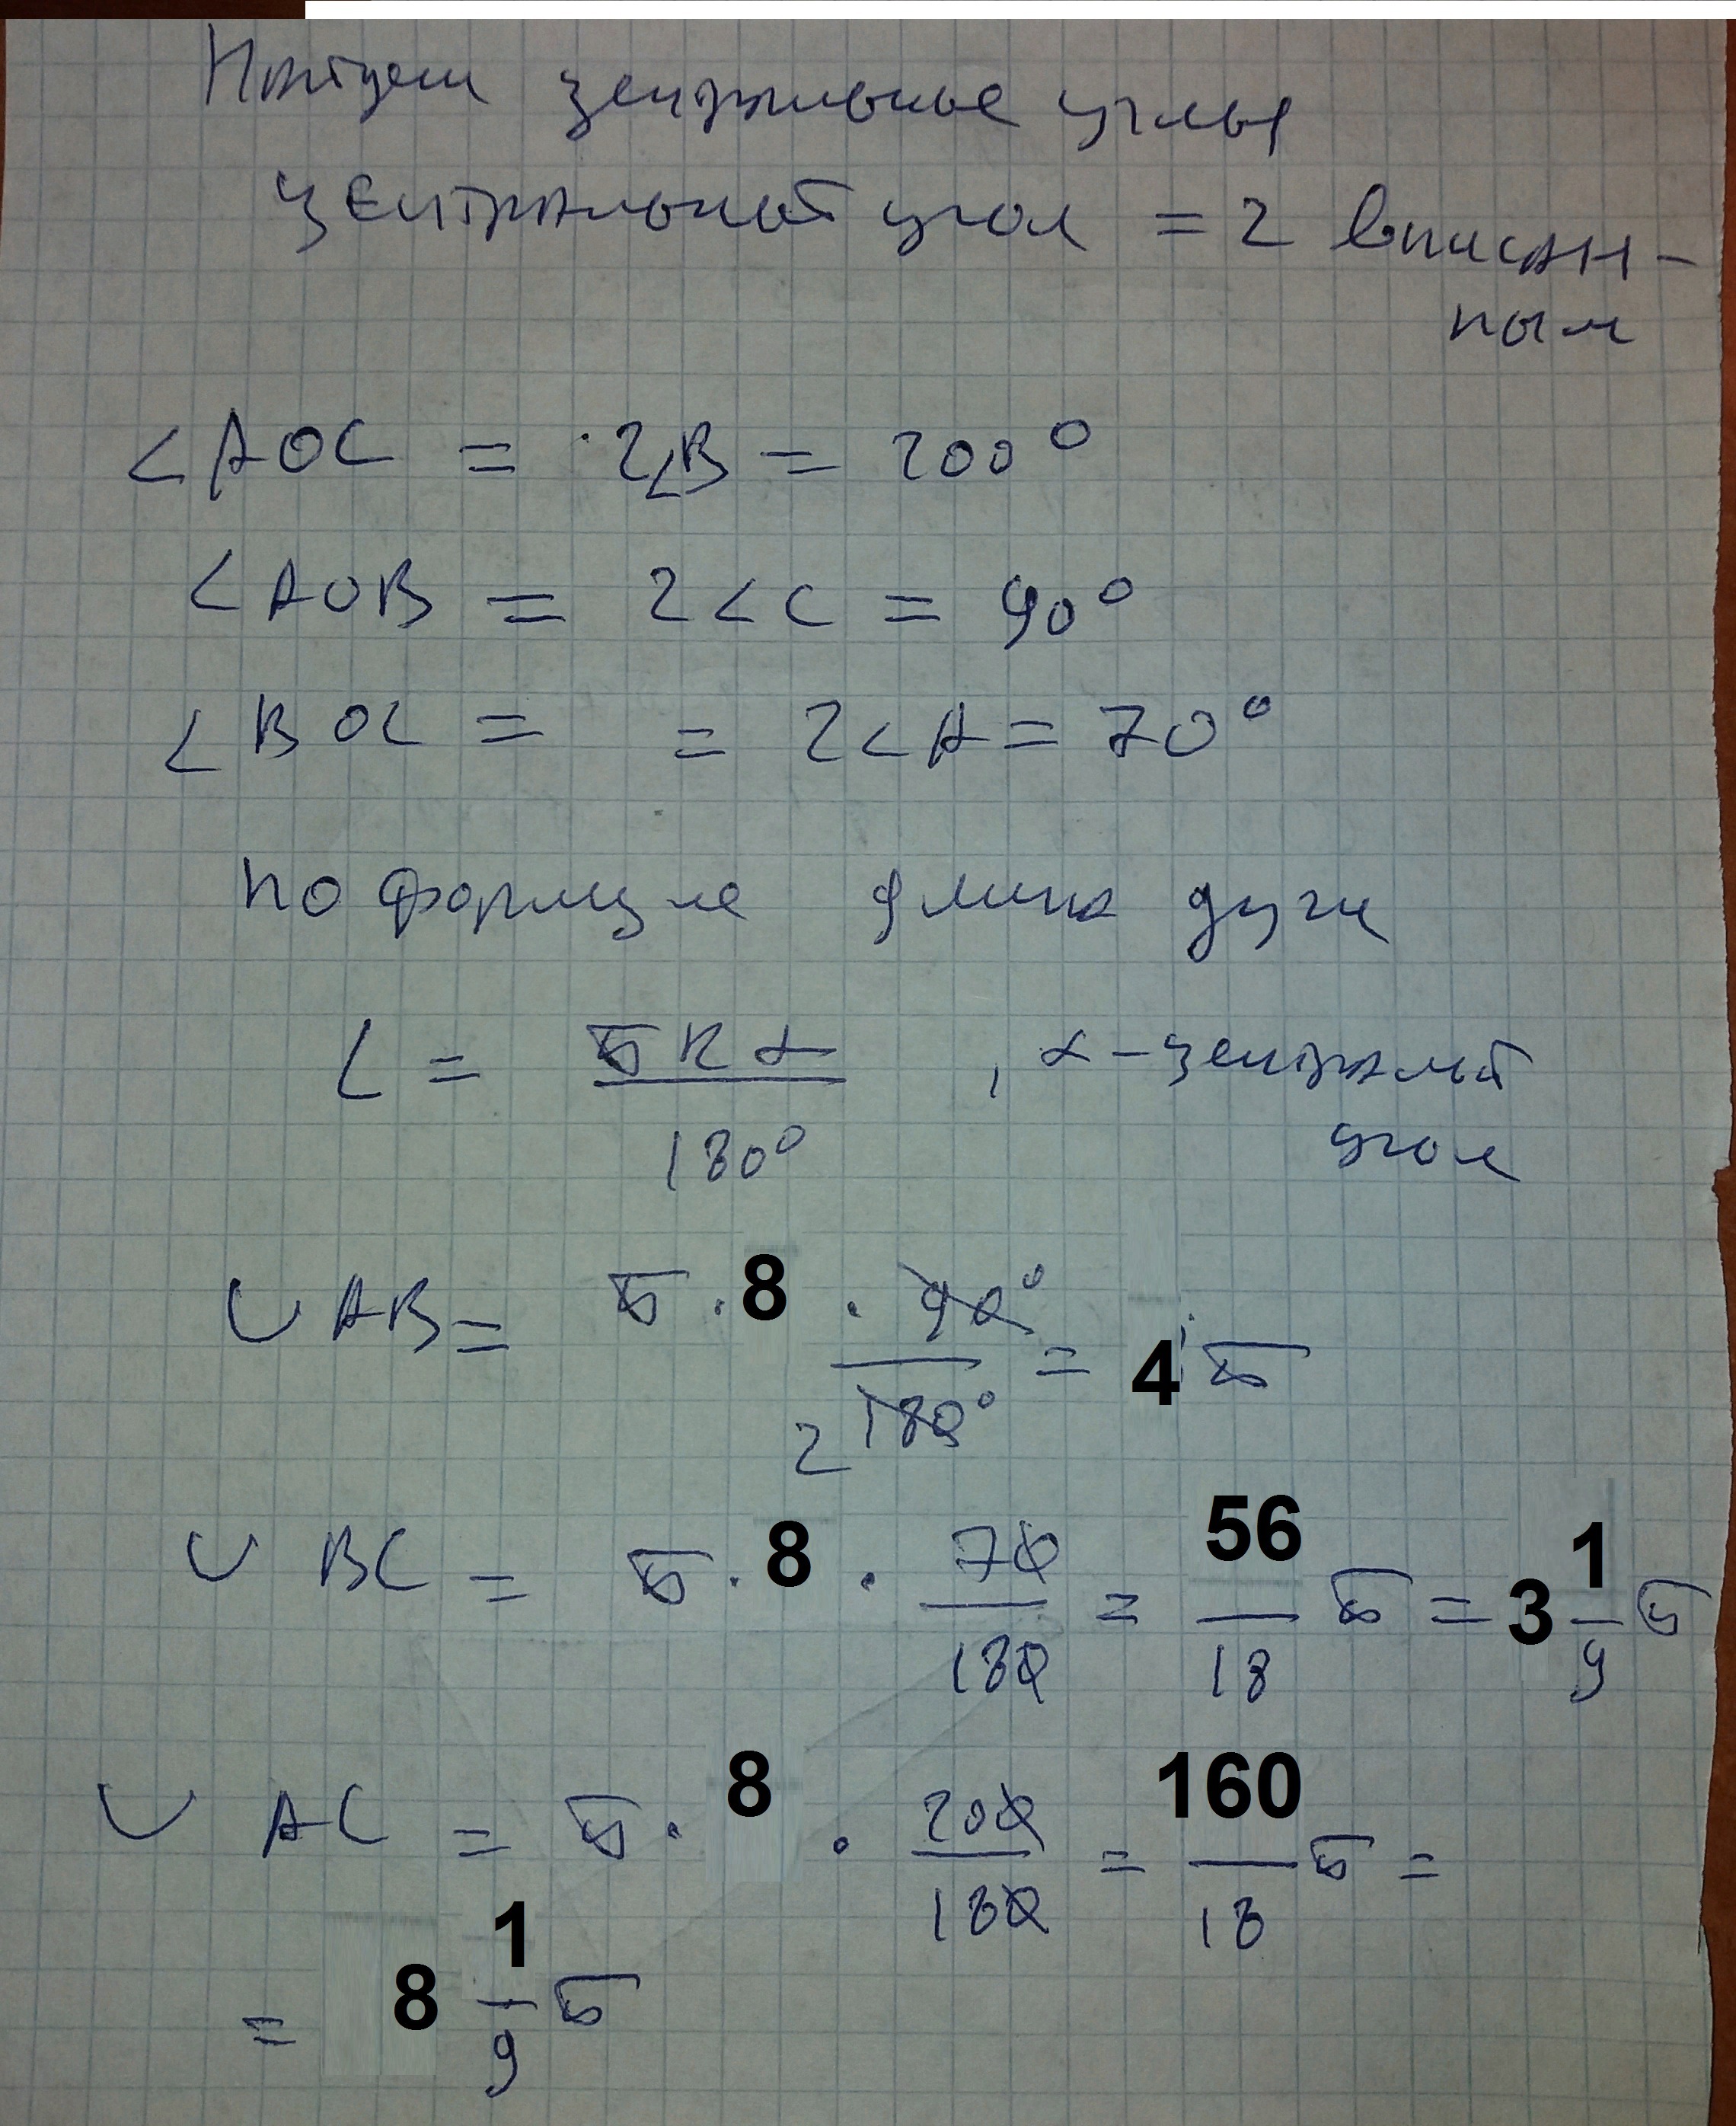 Найдем центральные углы
центральный угол = 2 вписан-
ным
∠AOC = 2∠B = 200°
∠AOB = 2∠C = 90°
∠BOC = = 2∠A = 70°
по формуле длина дуги
L = πRα / 180° , α - централый
угол
∪ AB = π · 8 · 90° / 2 180° = 4 π
∪ BC = π · 8 · 70 / 180 = 56 / 18 π = 3 1/9 π
∪ AC = π · 8 · 200 / 180 = 160 / 18 π =
= 8 1/9 π